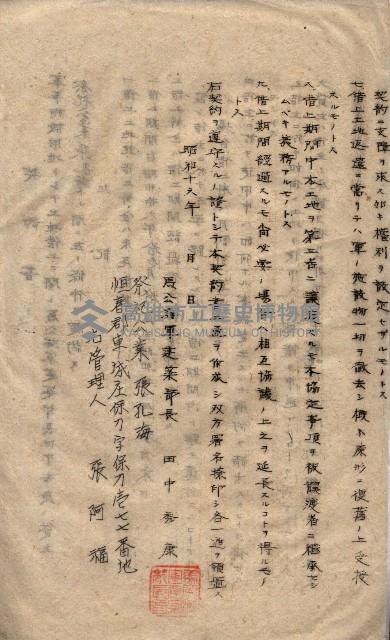 契約ニ支障ヲ来ス如キ權利ヲ設定セザルモノトス
七、借上土地返還ニ當リテハ軍ノ施設物一切ヲ撤去シ概ネ原形ニ復舊ノ上受授
スルモノトス
八、借上期間中本土地ヲ第三者ニ讓渡スルトキ本協定事項ヲ被讓渡者ニ繼承セシ
ムベキ義務アルモノトス
九、借上期間經過スルモ尚必要ノ場合相互協議ノ上之ヲ延長スルコトヲ得ルモノ
トス
右契約ヲ遵守スルノ證トシテ本契約書弐通ヲ作成シ双方署名捺印シ各一通ヲ領置ス
昭和十六年 月 日
馬公海軍建築部長 田中秀康
祭祀公業 張孔海
恒春郡車城庄保力字保力壱七七番地
右管理人 張阿福
高雄市立歷史博物館